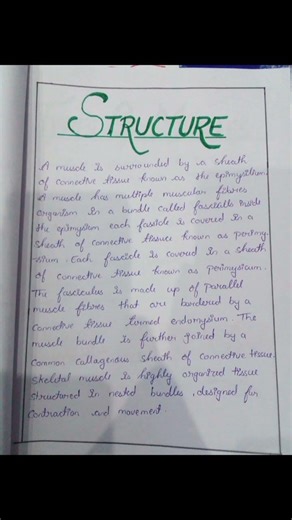 STRUCTURE
A muscle is surrounded by a sheath
of connective tissue known as the epimysium.
A muscle has multiple muscular fibres
organism in a bundle called fascicalls inside
the epimysium each fasicle is covered in a
sheath of connective tissues known as perimy-
sium. Each fascicle is covered in a sheath
of connective tissue known as perimysium.
The fasciculus is made up of parallel
muscle fibres that are bordered by a
connective tissue termed endomysium. The
muscle bundle is further joined by a
common callagenous sheath of connective tissue.
Skeletal muscle is highly organized tissue
structured in nested bundles, designed for
contraction and movement.